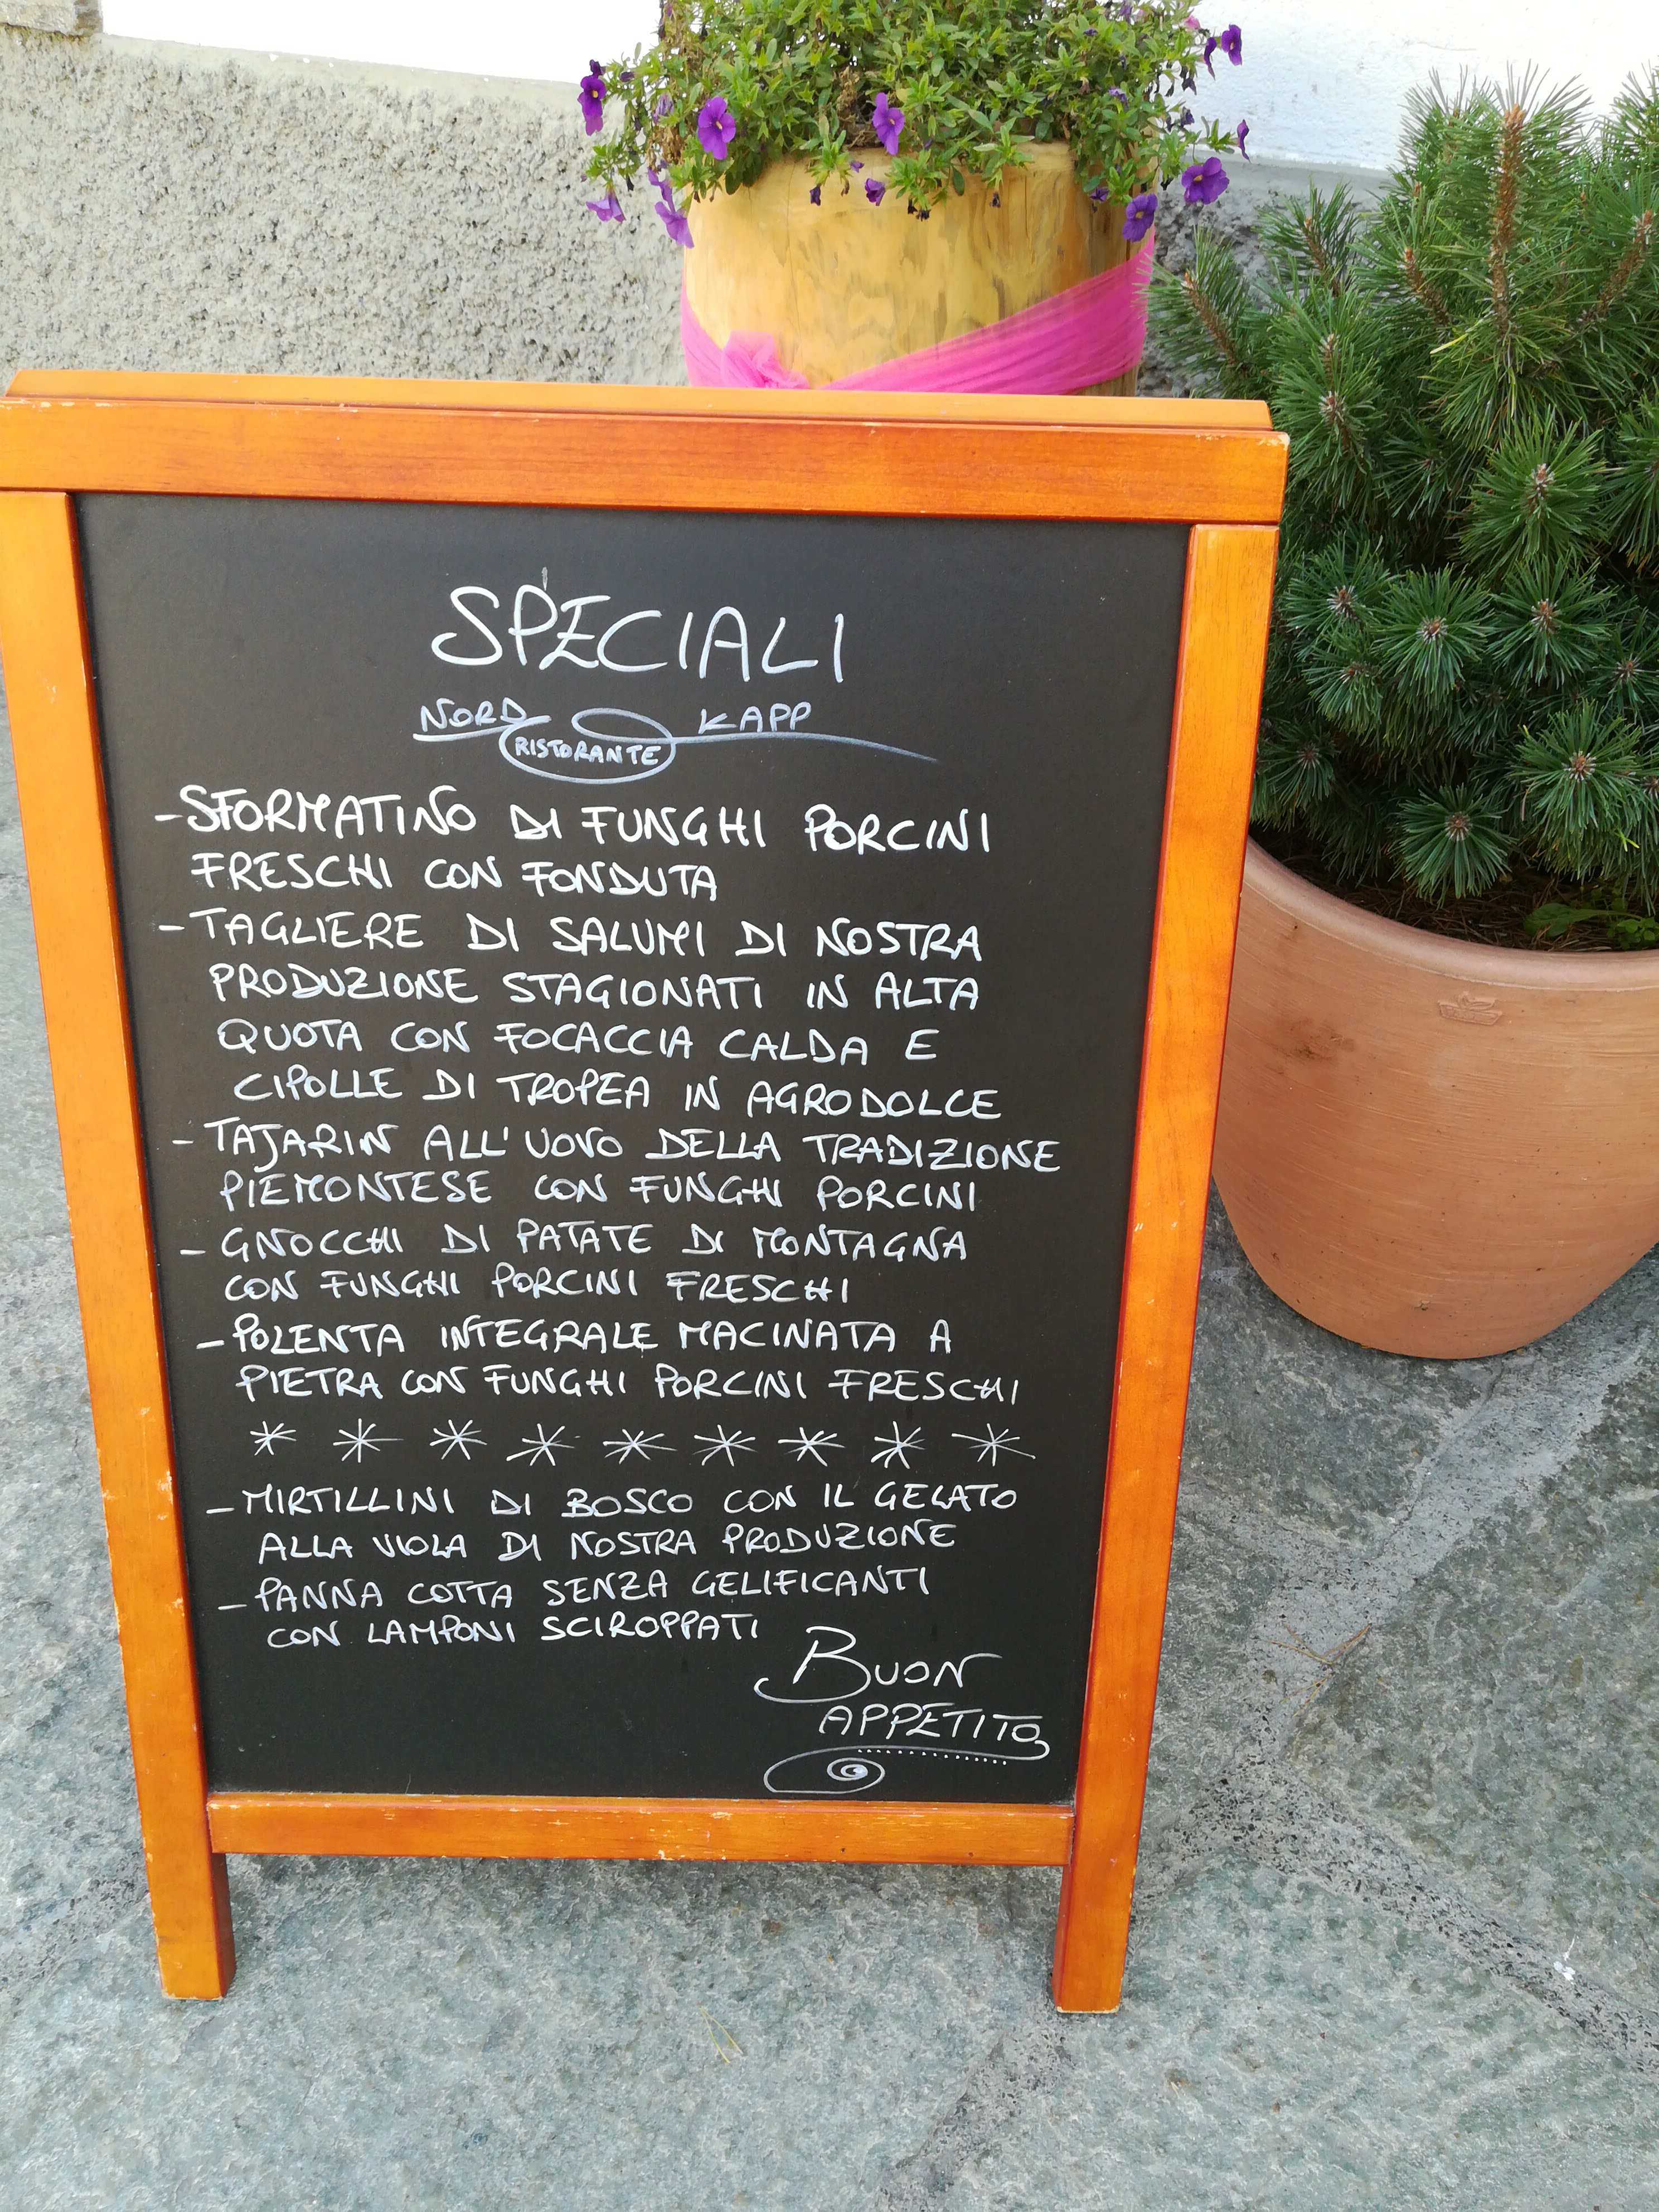 SPECIALI
NORD KAPP
RISTORANTE
- SFORMATINO DI FUNGHI PORCINI
FRESCHI CON FONDUTA
- TAGLIERE DI SALUMI DI NOSTRA
PRODUZIONE STAGIONATI IN ALTA
QUOTA CON FOCACCIA CALDA E
CIPOLLE DI TROPEA IN AGRODOLCE
- TAJARIN ALL'UOVO DELLA TRADIZIONE
PIEMONTESE CON FUNGHI PORCINI
- GNOCCHI DI PATATE DI MONTAGNA
CON FUNGHI PORCINI FRESCHI
- POLENTA INTEGRALE MACINATA A
PIETRA CON FUNGHI PORCINI FRESCHI
* * * * * * * * *
- MIRTILLINI DI BOSCO CON IL GELATO
ALLA VIOLA DI NOSTRA PRODUZIONE
- PANNA COTTA SENZA GELIFICANTI
CON LAMPONI SCIROPPATI
BUON
APPETITO